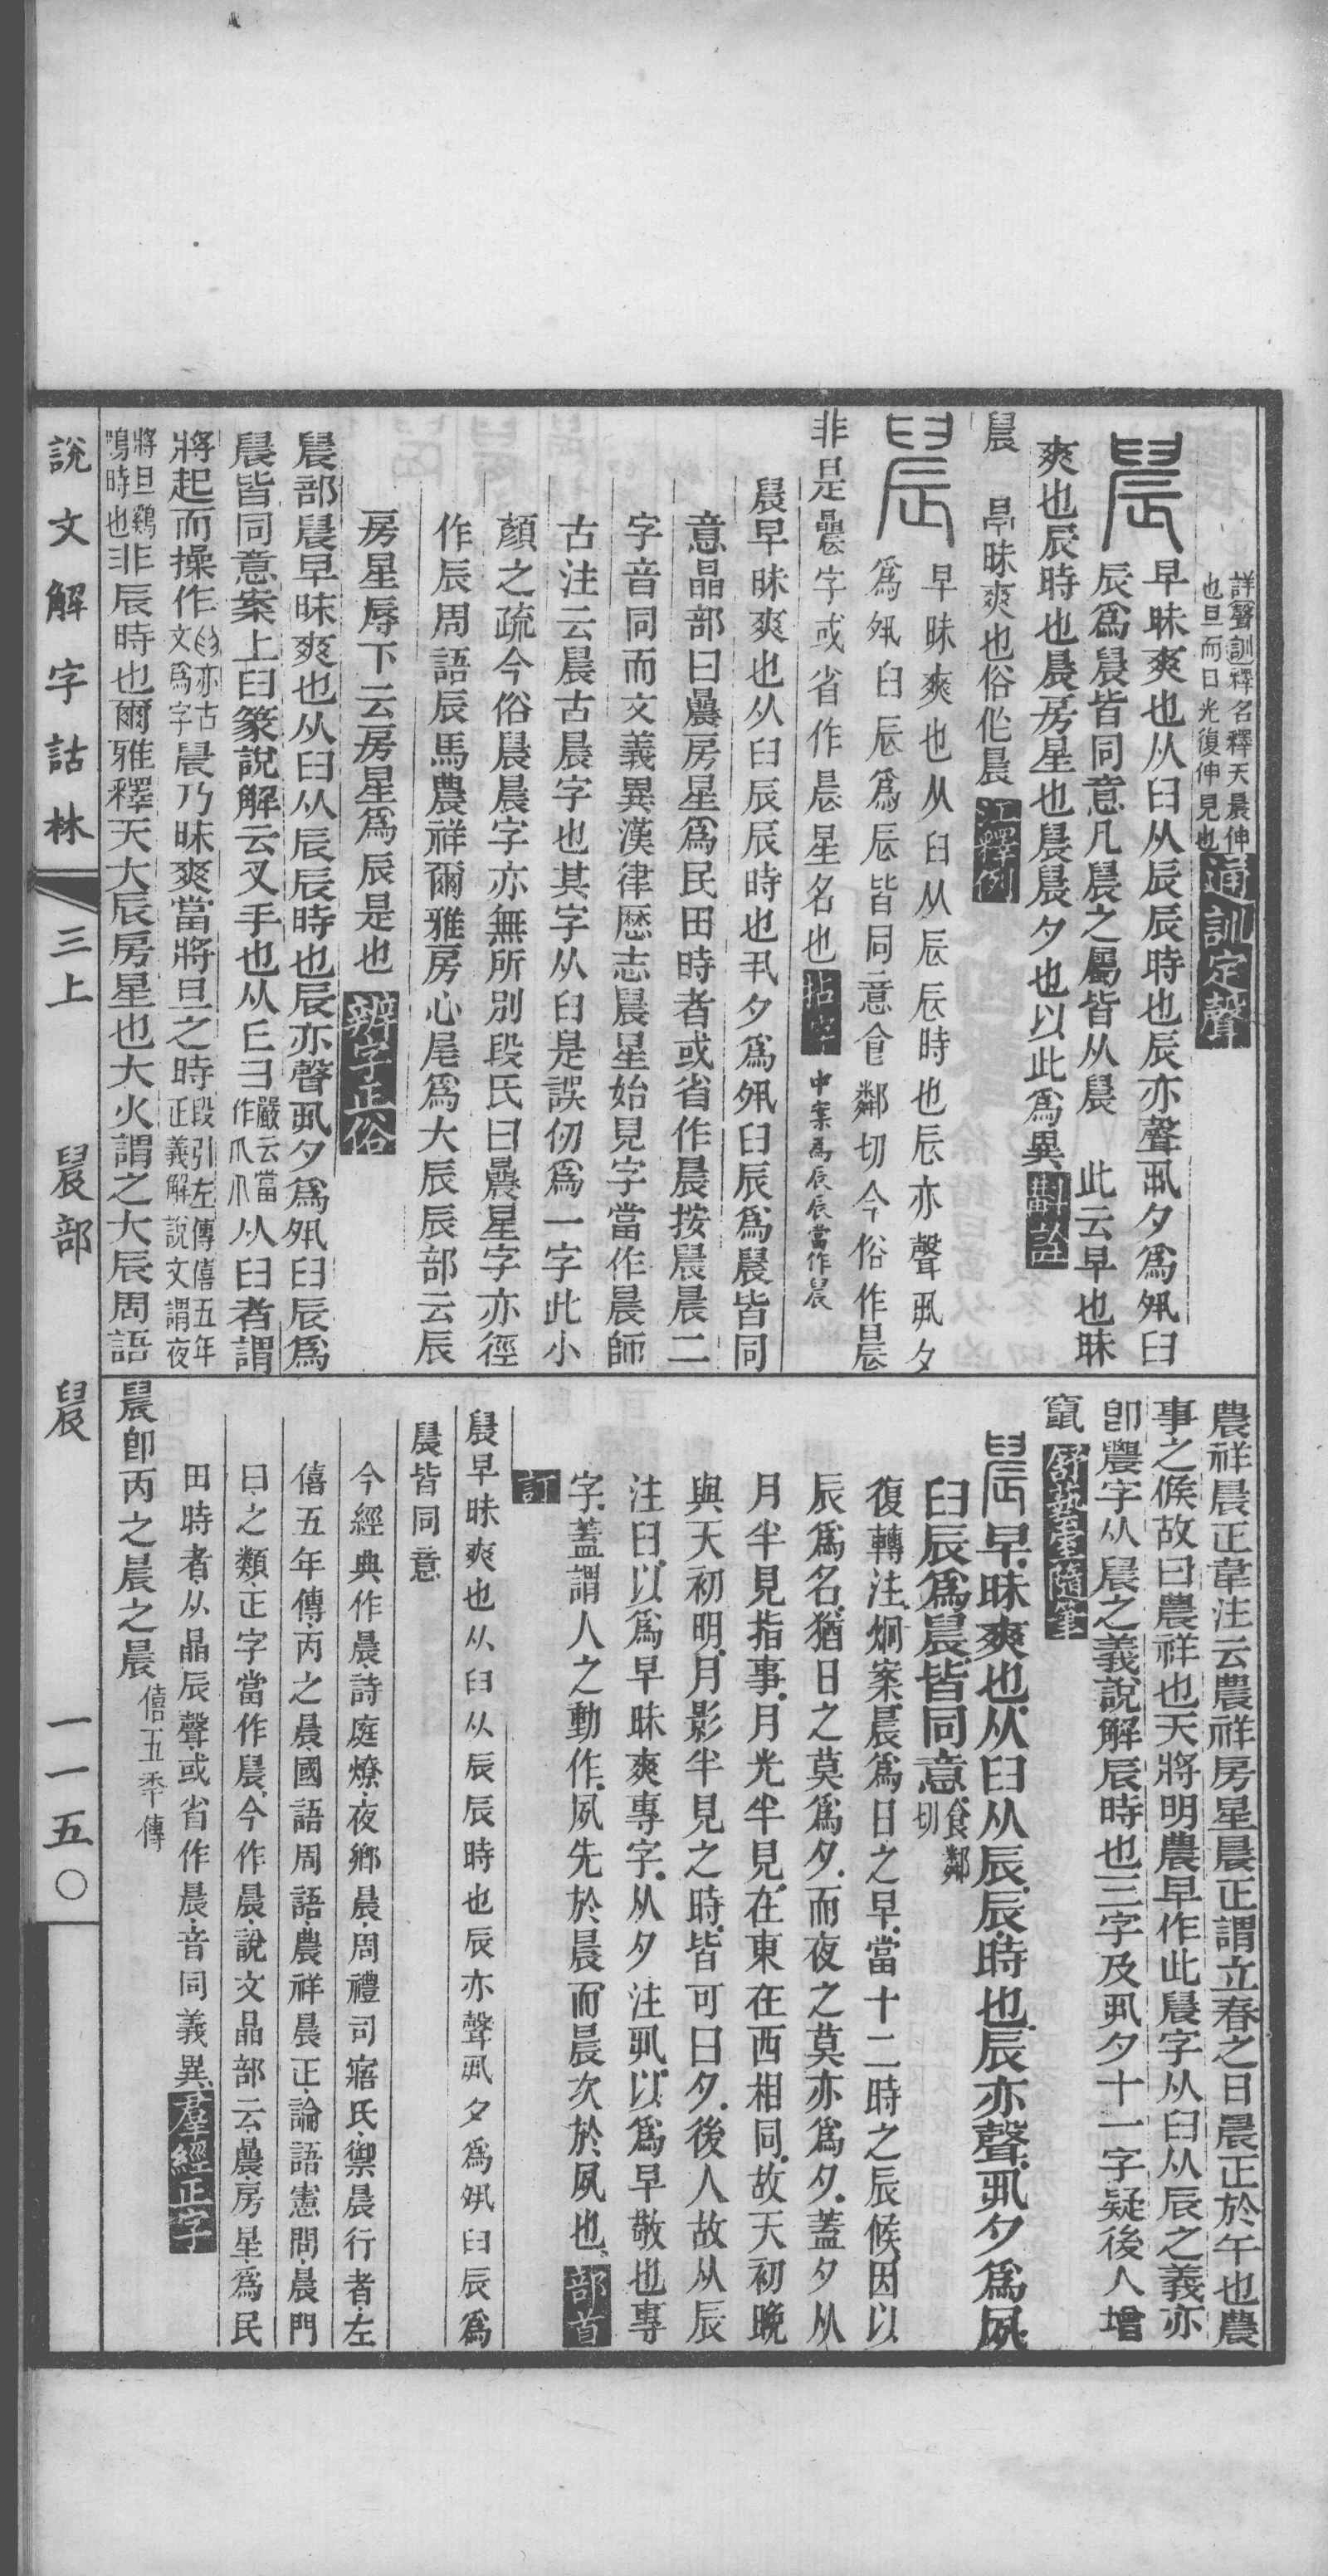 詳聲訓釋名釋天晨伸
也旦而日光復伸見也通訓定聲
早昧爽也从𦥑从辰辰時也辰亦聲𠃨夕爲𡖊𦥑
辰爲晨皆同意凡晨之屬皆从晨 此云早也昧
爽也辰時也晨房星也晨晨夕也以此爲異斠詮
晨 昂昧爽也俗作晨江釋例
早昧爽也从𦥑从辰辰時也辰亦聲𠃨夕
爲𡖊𦥑辰爲晨皆同意食鄰切今俗作晨
非是曟字或省作晨星名也拈字 中案爲辰辰當作晨
晨早昧爽也从𦥑辰辰時也𠃨夕爲𡖊𦥑辰爲晨皆同
意晶部曰曟房星爲民田時者或省作晨按晨晨二
字音同而文義異漢律厯志晨星始見字當作晨師
古注云晨古晨字也其字从𦥑是誤仞爲一字此小
顏之疏今俗晨晨字亦無所別段氏曰曟星字亦徑
作辰周語辰馬農祥爾雅房心尾爲大辰辰部云辰
房星辱下云房星爲辰是也辨字正俗
晨部晨早昧爽也从𦥑从辰辰時也辰亦聲𠃨夕爲𡖊𦥑辰爲
晨皆同意案上𦥑篆說解云叉手也从𦥑彐嚴云當作爪爪从𦥑者謂
將起而操作亦古文爲字晨乃昧爽當將旦之時段引左傳僖五年正義解說文謂夜
將旦鷄鳴時也非辰時也爾雅釋天大辰房星也大火謂之大辰周語
農祥晨正韋注云農祥房星晨正謂立春之日晨正於午也農
事之候故曰農祥也天將明農早作此晨字从𦥑从辰之義亦
卽農字从晨之義說解辰時也三字及𠃨夕十一字疑後人增
竄舒藝室隨筆
早昧爽也从𦥑从辰辰時也辰亦聲𠃨夕爲夙
𦥑辰爲晨皆同意食鄰切
復轉注炯案晨爲日之早當十二時之辰候因以
辰爲名猶日之莫爲夕而夜之莫亦爲夕蓋夕从
月半見指事月光半見在東在西相同故天初晚
與天初明月影半見之時皆可曰夕後人故从辰
注𦥑以爲早昧爽專字从夕注𠃨以爲早敬也專
字蓋謂人之動作夙先於晨而晨次於夙也部首
訂
晨早昧爽也从𦥑从辰辰時也辰亦聲𠃨夕爲𡖊𦥑辰爲
晨皆同意
今經典作晨詩庭燎夜鄉晨周禮司寤氏禦晨行者左
僖五年傳丙之晨國語周語農祥晨正論語憲問晨門
曰之類正字當作晨今作晨說文晶部云曟房星爲民
田時者从晶辰聲或省作晨音同義異羣經正字
晨卽丙之晨之晨僖五秊傳
說文解字詁林 三上 晨部 晨 一一五〇